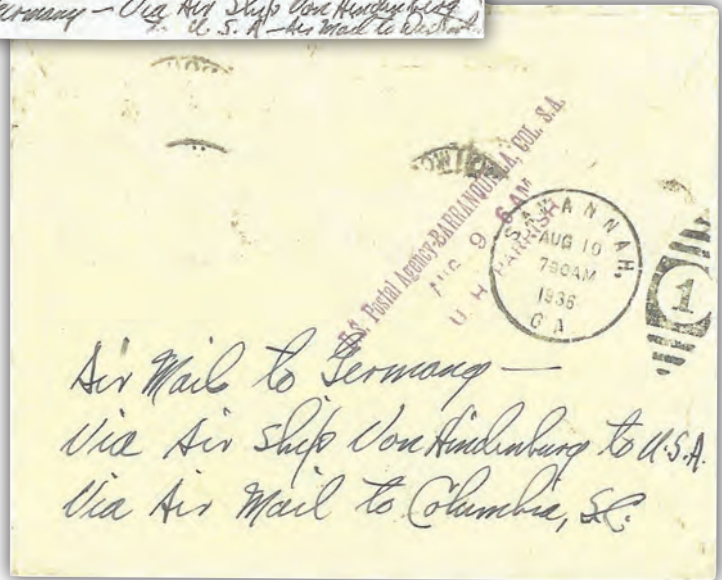 Germany – Via Air Ship Von Hindenburg
U.S.A – Air Mail to
U.S. Postal Agency-BARRANQUILLA, COL. S.A.
AUG 9 6 AM
U. H. PARRISH
SAVANNAH,
AUG 10
7 30 AM
1936
GA
1
Air Mail to Germany —
Via Air Ship Von Hindenburg to U.S.A.
Via Air Mail to Columbia, S.C.